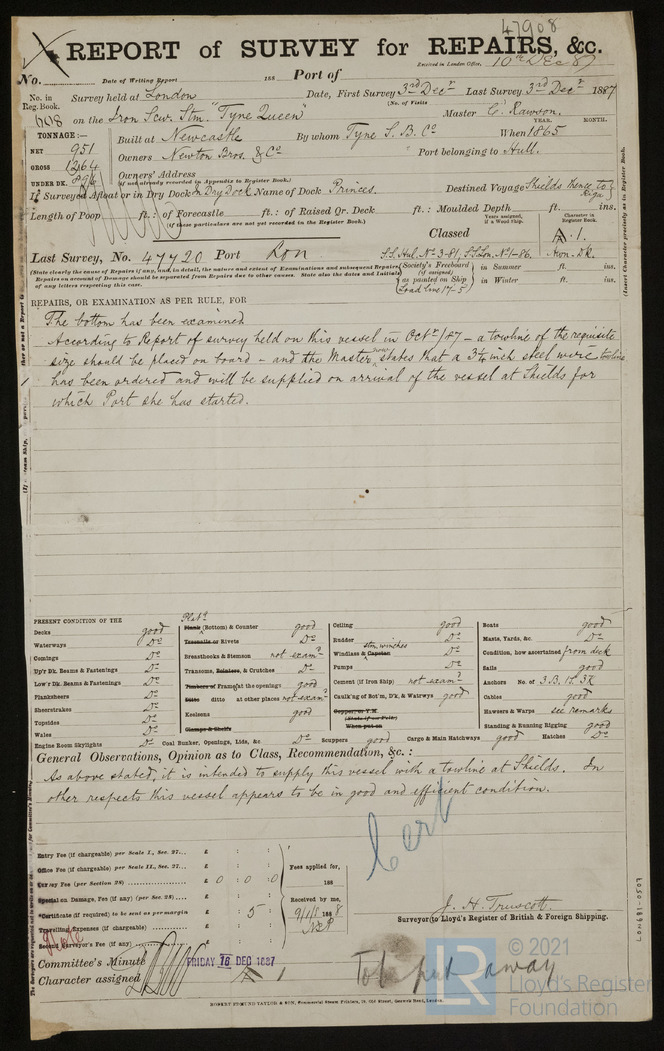 47908
REPORT of SURVEY for REPAIRS, &c.
Received in London Office, 10th Dec 87
No. Date of Writing Report 188 Port of
No. in Reg. Book. Survey held at London Date, First Survey 3rd Decr Last Survey 3rd Decr 1887
(No. of Visits
608 on the Iron Scw. Stm. "Tyne Queen" Master C. Rawson.
TONNAGE:— YEAR. MONTH.
NET 951 Built at Newcastle By whom Tyne S. B. Co When 1865
GROSS 1264 Owners Newton Bros. & Co Port belonging to Hull.
UNDER DK. 896 Owners' Address
(if not already recorded in Appendix to Register Book.)
If Surveyed Afloat or in Dry Dock In Dry Dock Name of Dock Princes. Destined Voyage Shields thence to Riga
Length of Poop ft.: of Forecastle ft.: of Raised Qr. Deck ft.: Moulded Depth ft. ins.
(if these particulars are not yet recorded in the Register Book.)
Years assigned, if a Wood Ship. Character in Register Book.
Classed A.1.
Last Survey, No. 47720 Port Lon S.S. Hul. No 3-81, S.S. Lon. No 1-86.
(State clearly the cause of Repairs if any, and, in detail, the nature and extent of Examinations and subsequent Repairs.
Repairs on account of Damage should be separated from Repairs due to other causes. State also the dates and initials
of any letters respecting this case.
Society's Freeboard (if assigned) as painted on Ship Load line 17-5 in Summer ft. ins.
in Winter ft. ins.
REPAIRS, OR EXAMINATION AS PER RULE, FOR
The bottom has been examined
According to Report of survey held on this vessel in Octr/87 – a towline of the requisite
size should be placed on board – and the Master now states that a 3¼ inch steel wire towline
has been ordered and will be supplied on arrival of the vessel at Shields for
which Port she has started.
PRESENT CONDITION OF THE
Decks good
Waterways Do
Comings Do
Up'r Dk. Beams & Fastenings Do
Low'r Dk. Beams & Fastenings Do
Planksheers Do
Sheerstrakes Do
Topsides Do
Wales Do
Engine Room Skylights Do
Platg
Plank (Bottom) & Counter good
Treenails or Rivets Do
Breasthooks & Stemson not examd
Transoms, Pointers, & Crutches Do
Timbers or Frames at the openings good
Ditto ditto at other places not examd
Keelsons good
Clamps & Shelfs
Coal Bunker, Openings, Lids, &c. Do
Ceiling good
Rudder Do
stm. winches
Windlass & Capstan Do
Pumps Do
Cement (if Iron Ship) not examd
Caulk'ng of Bot'm, D'k, & Waterwys good
Copper or Y.M.
(State if on Felt)
When put on
Scuppers good Cargo & Main Hatchways good
Boats good
Masts, Yards, &c. Do
Condition, how ascertained from deck
Sails good
Anchors No. of 3.B. 1S. 3K
Cables good
Hawsers & Warps see remarks
Standing & Running Rigging good
Hatches Do
General Observations, Opinion as to Class, Recommendation, &c.:
As above stated, it is intended to supply this vessel with a towline at Shields. In
other respects this vessel appears to be in good and efficient condition.
Cert
Entry Fee (if chargeable) per Scale I., Sec. 27... £ : :
Office Fee (if chargeable) per Scale II., Sec. 27... £ : :
Survey Fee (per Section 28) £ 0 : 0 : 0
Special on Damage, Fee (if any) (per Sec. 28).... £ : :
Certificate (if required) to be sent as per margin £ : 5 :
Travelling Expenses (if chargeable) £ : :
Second Surveyor's Fee (if any) £ : :
Fees applied for,
188
Received by me,
9/1/1888
J. H. Truscott
Surveyor to Lloyd's Register of British & Foreign Shipping.
Note
Committee's Minute FRIDAY 16 DEC 1887
Character assigned A 1
To be put away
ROBERT EDMUND TAYLOR & SON, Commercial Steam Printers, 19, Old Street, Goswell Road, London.
LON697-0507
© 2021
LR
Lloyd's Register
Foundation